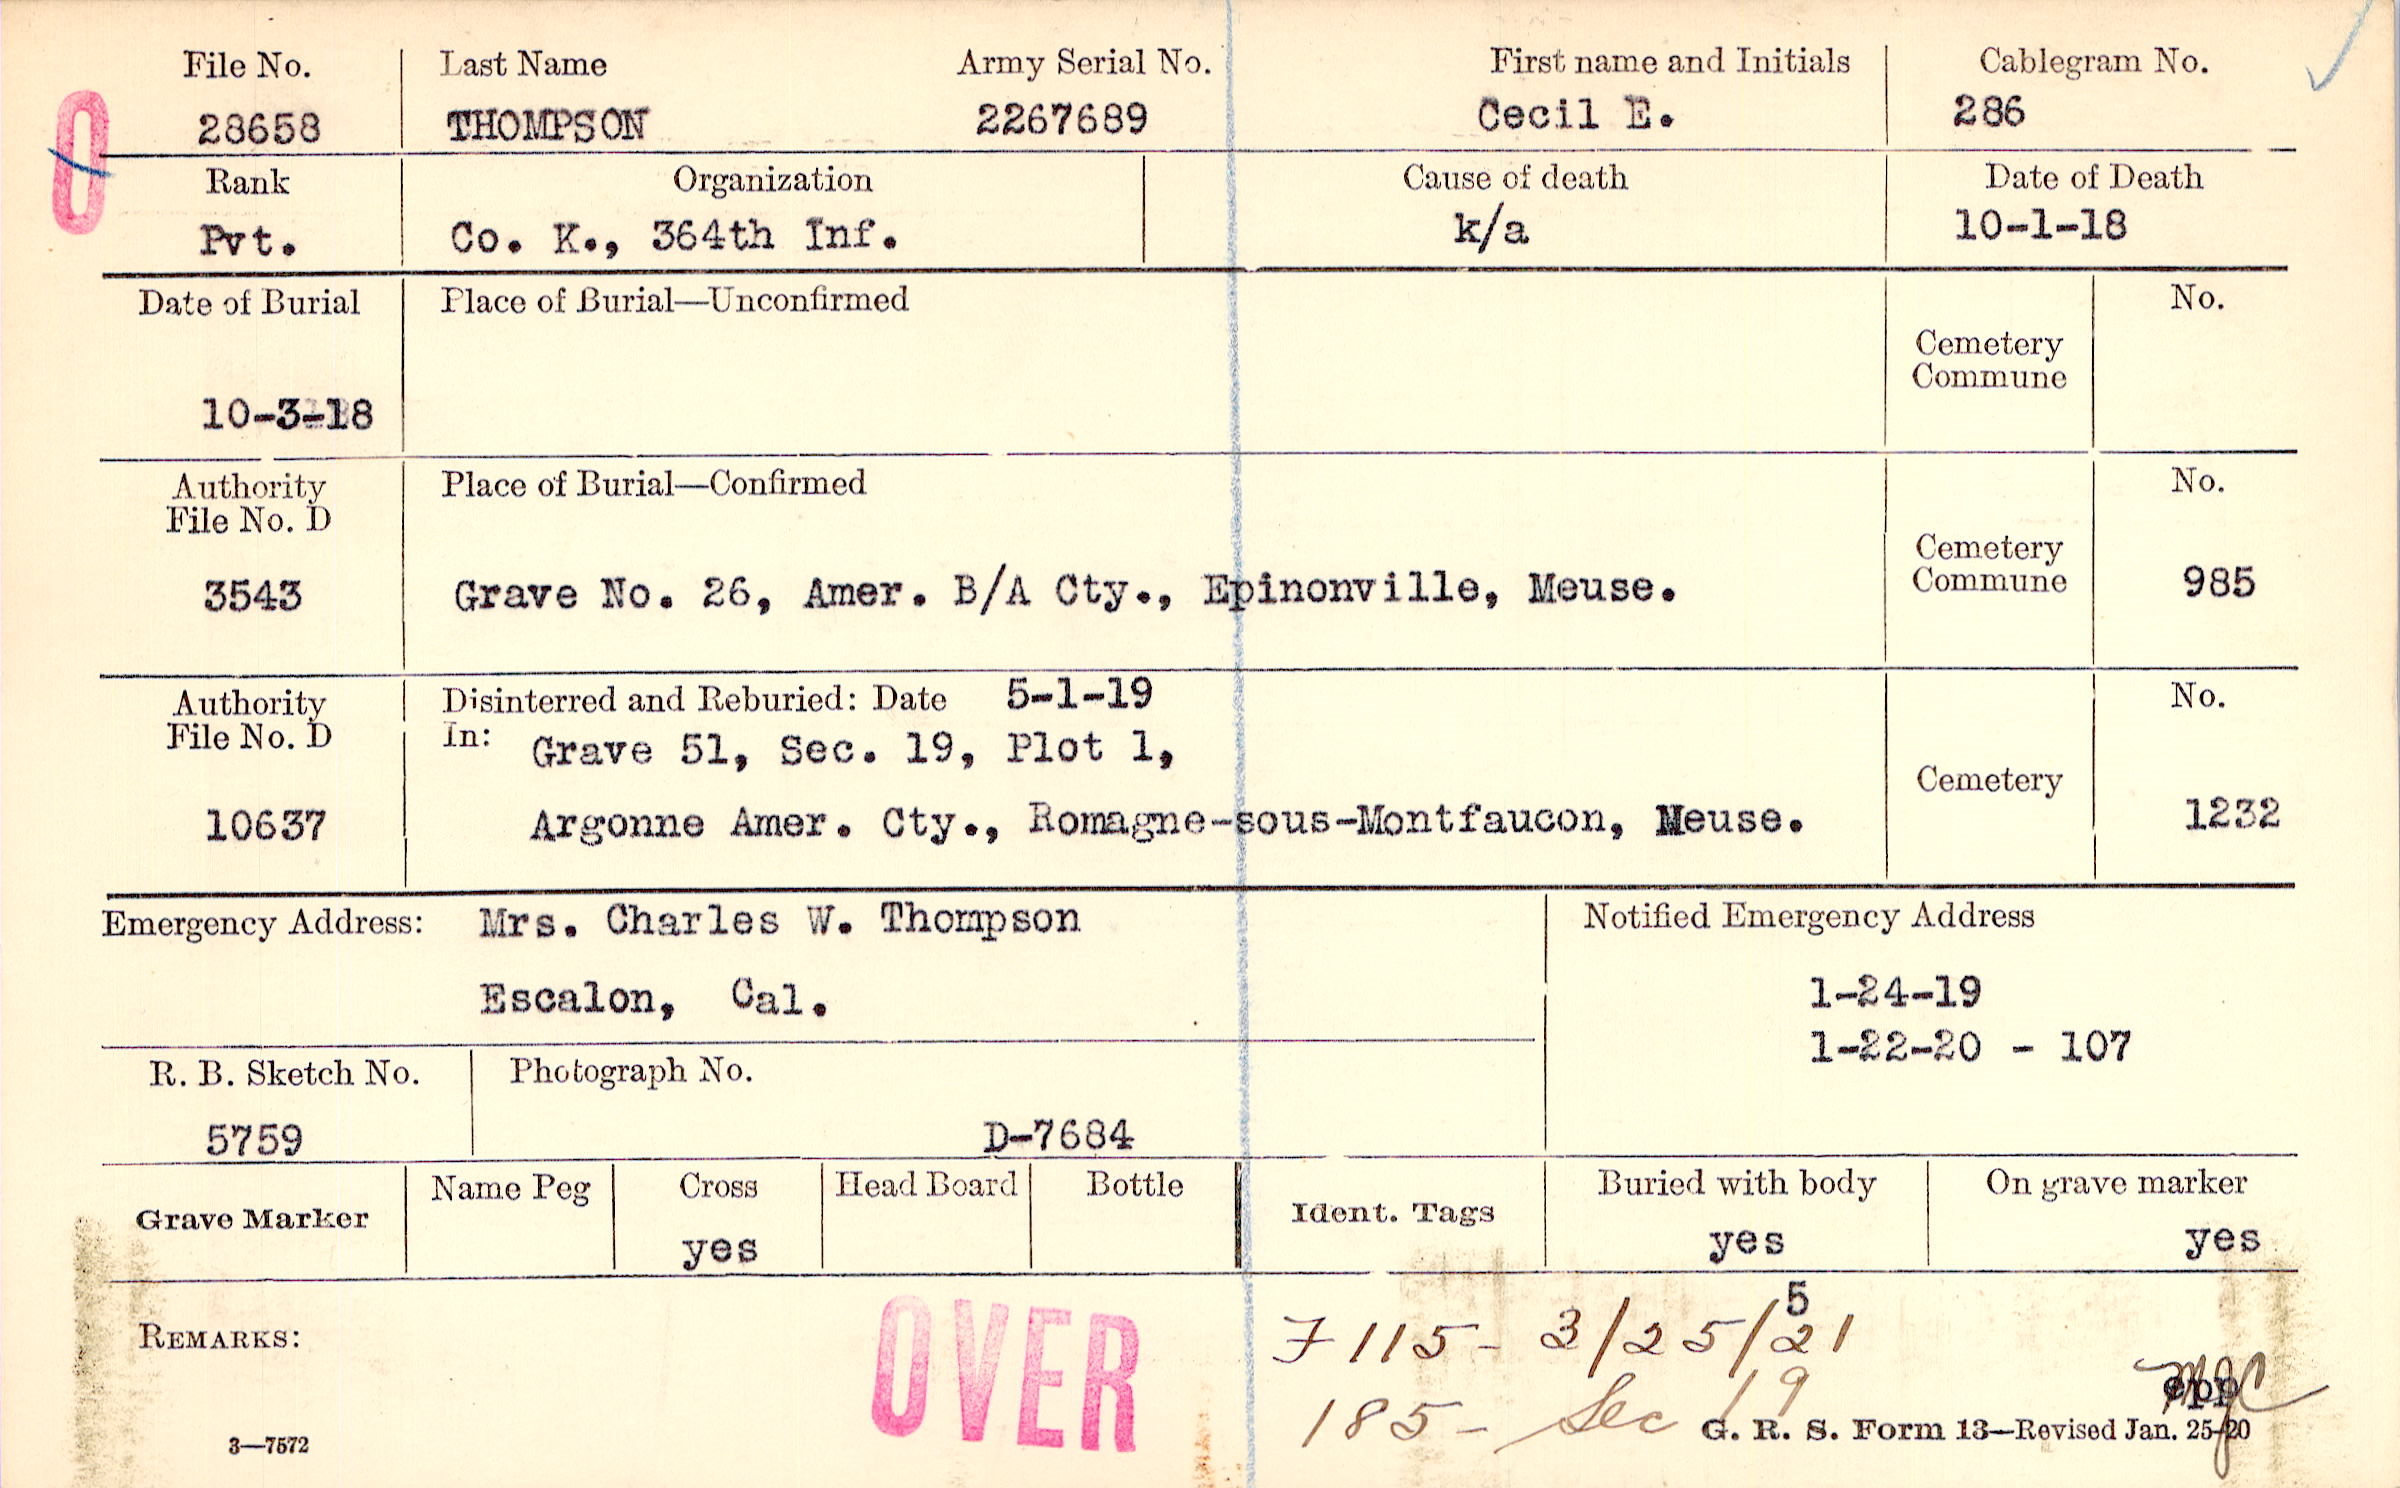 File No. Last Name Army Serial No. First name and Initials Cablegram No.
28658 THOMPSON 2267689 Cecil E. 286
O
Rank Organization Cause of death Date of Death
Pvt. Co. K., 364th Inf. k/a 10-1-18
Date of Burial Place of Burial—Unconfirmed No.
Cemetery
Commune
10-3-18
Authority Place of Burial—Confirmed No.
File No. D
Cemetery
Commune
3543 Grave No. 26, Amer. B/A Cty., Epinonville, Meuse. 985
Authority Disinterred and Reburied: Date 5-1-19 No.
File No. D In: Grave 51, Sec. 19, Plot 1,
Cemetery
10637 Argonne Amer. Cty., Romagne-sous-Montfaucon, Meuse. 1232
Emergency Address: Mrs. Charles W. Thompson Notified Emergency Address
Escalon, Cal. 1-24-19
1-22-20 - 107
R. B. Sketch No. Photograph No.
5759 D-7684
Grave Marker Name Peg Cross Head Board Bottle Ident. Tags Buried with body On grave marker
yes yes yes
5
REMARKS: OVER F 115 - 3/25/21
185 - Sec 19
3—7572 G. R. S. Form 13—Revised Jan. 25-20